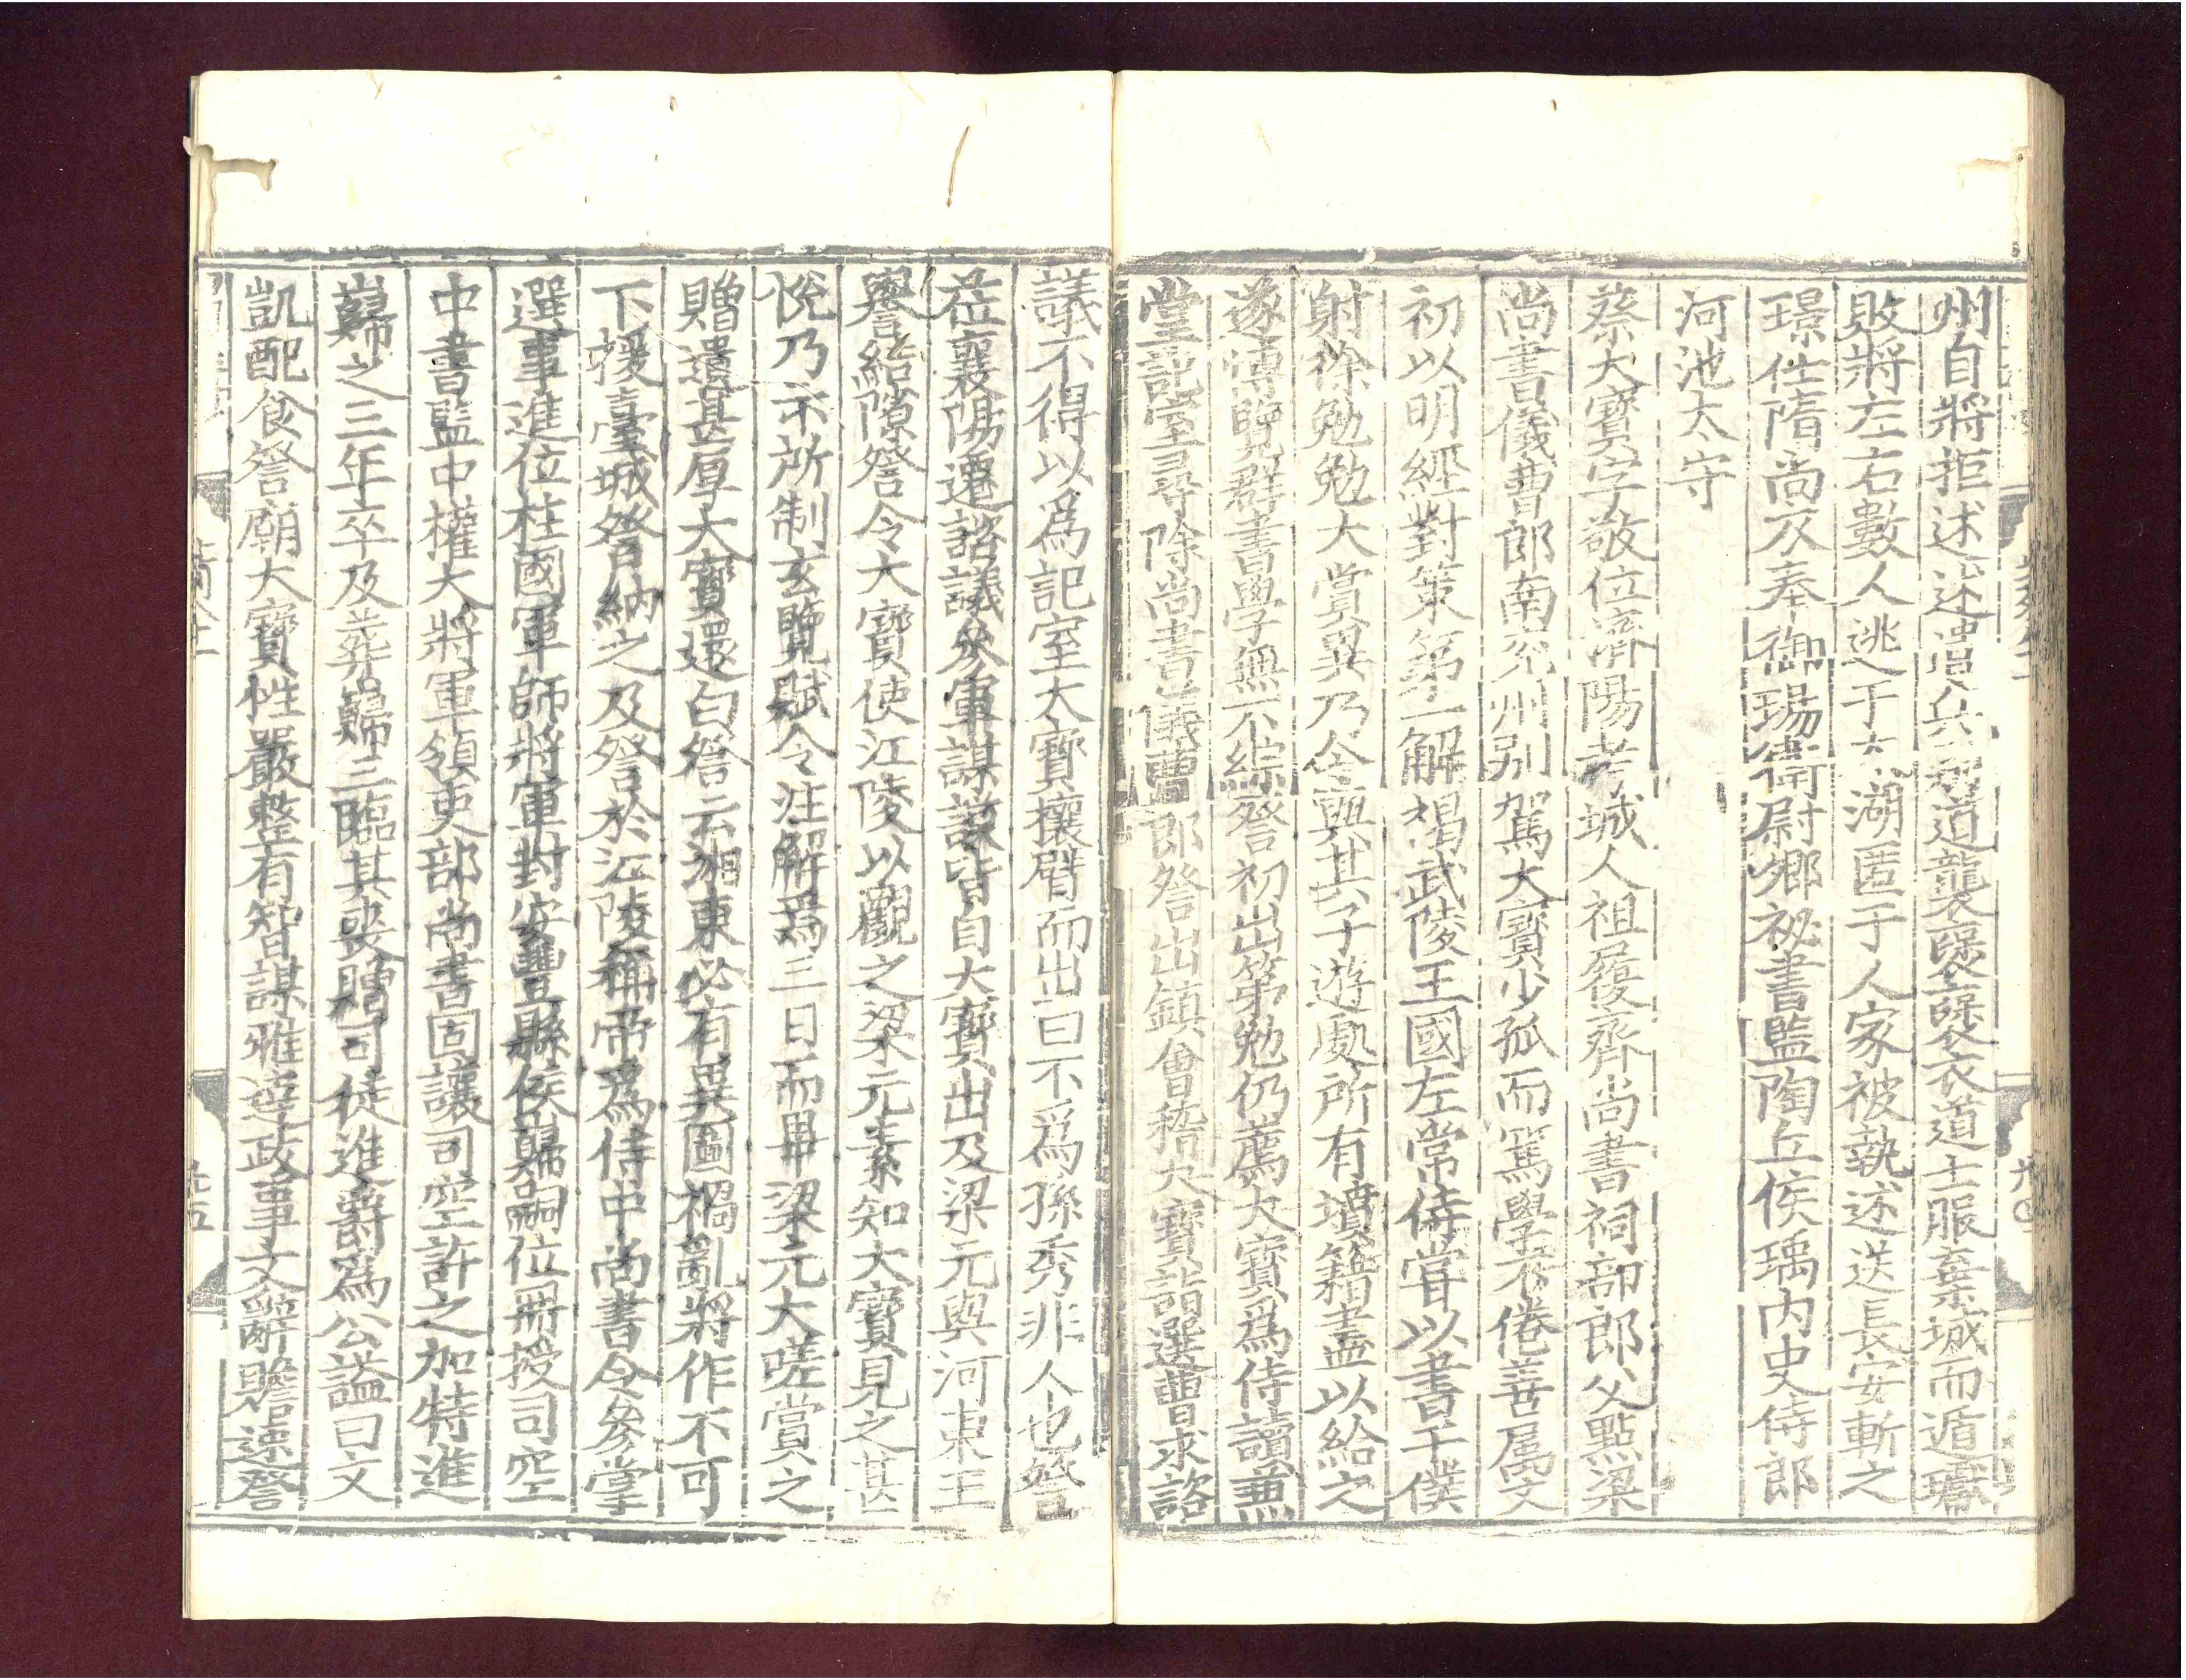 州自將拒述述遣兵別道襲吳吳衣道士服棄城而遁瓛
敗將左右數人逃于太湖匿于人家被執述送長安斬之
璟仕隋尚衣奉御瑒衛尉卿祕書監陶丘侯瑀內史侍郎
河池太守
蔡大寶字敬位濟陽考城人祖履齊尚書祠部郎父點梁
尚書儀曹郎南兗州別駕大寶少孤而篤學不倦善属文
初以明經對策第一解褐武陵王國左常侍甞以書干僕
射徐勉勉大賞異乃令與其子遊處所有墳籍盡以給之
遂博覽群書學無不綜詧初出第勉仍薦大寶爲侍讀兼
掌記室尋除尚書儀曹郎詧出鎮會稽大寶詣選曹求諮
議不得以爲記室大寶攘臂而出曰不爲孫秀非人也詧
莅襄陽遷諮議參軍謀謨皆自大寶出及梁元與河東王
譽結隙詧令大寶使江陵以觀之梁元素知大寶見之甚
悅乃示所制玄覽賦令注解焉三日而畢梁元大嗟賞之
贈遺甚厚大寶還白詧云湘東必有異圖禍亂將作不可
下援臺城詧納之及詧於江陵稱帝爲侍中尚書令參掌
選事進位柱國軍師將軍封安豐縣侯巋嗣位冊授司空
中書監中權大將軍領吏部尚書固讓司空許之加特進
巋之三年卒及葬巋三臨其喪贈司徒進爵爲公謚曰文
凱配食詧廟大寶性嚴整有智謀雅達政事文辭贍速詧